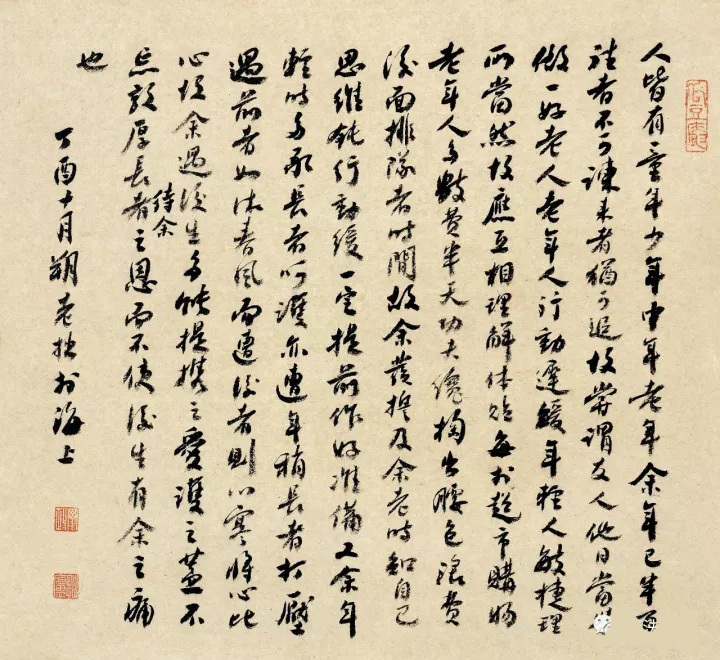 人皆有童年少年中年老年余年已半百
往者不可諫来者猶可追故嘗謂友人他日當
做一好老人老年人行動遲緩年輕人敏捷理
所當然故應互相理解体貼每於超市購物
老年人多數費半天功夫纔掏出腰包浪費
後面排隊者時間故余提及余老時知自己
思維鈍行動緩一定提前作好准備又余年
輕時多承長者呵護亦遭年稍長者打壓
遇前者如沐春風而遭後者則心寒將心比
心故余遇後生多能提携之愛護之蓋不
忘敦厚長者待余之恩而不使後生有余之痛
也
丁酉十月朔老拙於海上